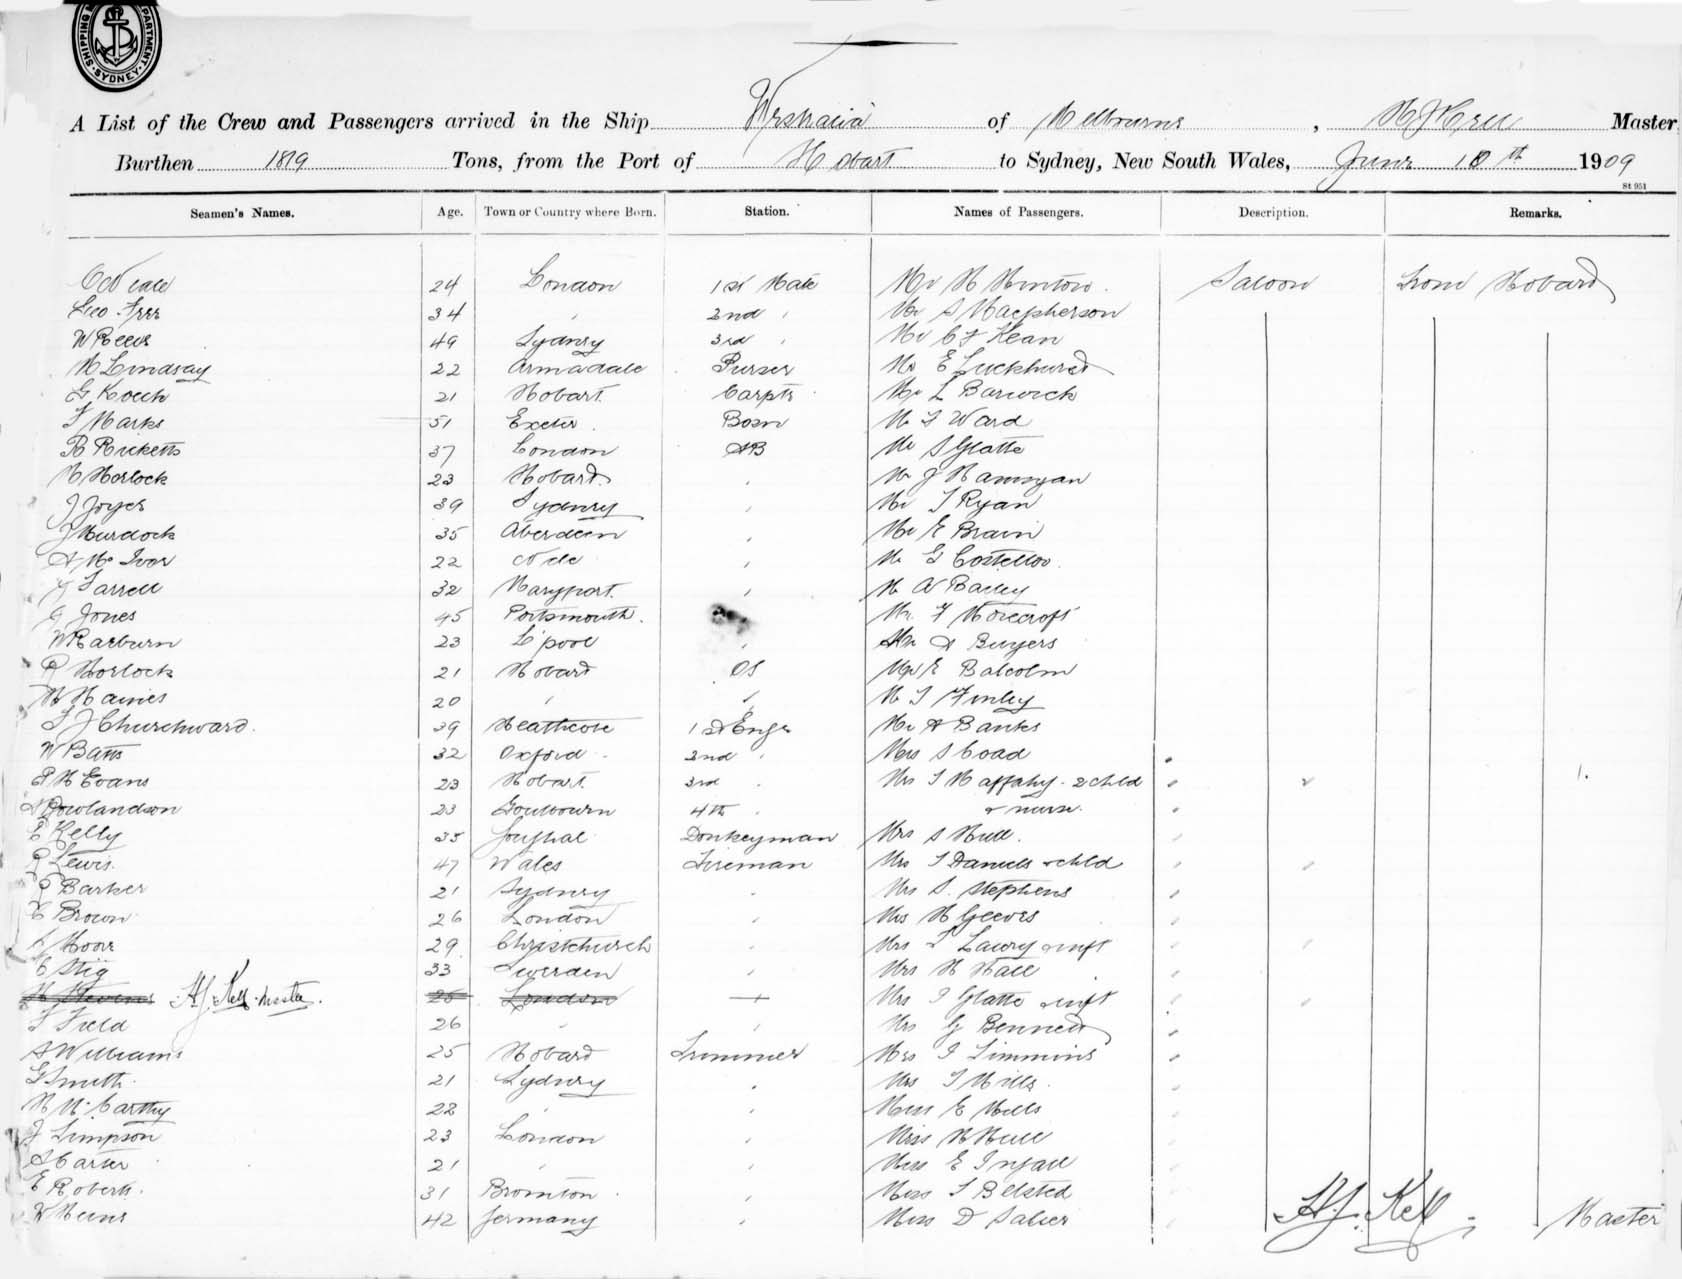 SHIPPING DEPARTMENT · SYDNEY ·
A List of the Crew and Passengers arrived in the Ship of Melbourne, Master
Burthen 1819 Tons, from the Port of Hobart to Sydney, New South Wales, June 10th 1909
St 951
Seamen's Names. Age. Town or Country where Born. Station. Names of Passengers. Description. Remarks.
24 London 1st Mate Mr H Hinton. Saloon from Hobart
Geo Free 34 " 2nd " Mr S Macpherson
W Reeve 49 Sydney 3rd " Mr C F Kean
H Lindsay 22 Armadale Purser Mr E Luckhurst
G Koech 21 Hobart Carptr Mr L Barwick
F Marks 51 Exeter Bosn Mr F Ward
B Ricketts 37 London AB Mr S Glatte
H Horlock 23 Hobart " Mr J
J Joyce 39 Sydney " Mr T Ryan
J Murdock 35 Aberdeen " Mr E Brain
A McIvor 22 " Mr G Costelloe
J Farrell 32 Maryport " Mr A Bailey
J Jones 45 Portsmouth. Mr F Horecroft
W Raeburn 23 L'pool " Mr A Buyers
R Horlock 21 Hobart OS Mr E Balcolm
H Haines 20 " " Mr T Finley
T J Churchward. 39 Heathcote 1st Engr Mr A Banks
W Batts 32 Oxford 2nd " Mrs S Coad "
P H Evans 23 Hobart 3rd " Mrs T Haffahy. 2 chld " "
Rowlandson 23 Goulbourn 4th " & nurse. "
E Kelly 35 Youghal Donkeyman Mrs S Hull "
R Lewis. 47 Wales Fireman Mrs T Daniels & chld " "
R Barker 21 Sydney " Mrs S. Stephens "
C Brown 26 London " Mrs H Geeves "
Moore 29 Christchurch " Mrs L Lawry & inft " "
C Stig 33 Sweden " Mrs H Hall "
H Stevens H.J. Kell. master. 26 London " Mrs J Glatte & inft " "
F Field 26 " " Mrs G Bennett "
S Williams 25 Hobart Trimmer Mrs J Timmins "
G Smith 21 Sydney " Mrs T Mills "
H McCarthy 22 " Miss E Mills "
J Simpson 23 London " Miss H Hull "
S Carter 21 " " Miss E "
E Roberts. 31 Bromton " Miss T Belsted
42 Germany " Miss D Salier H.J. Kell Master